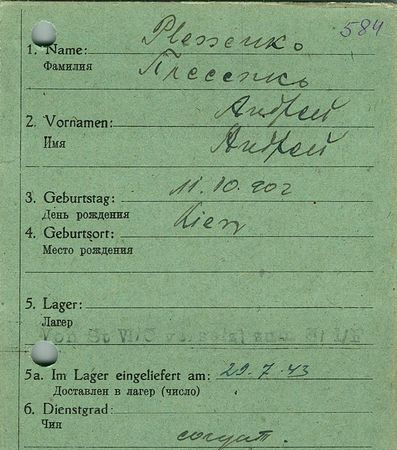 584
1. Name:
Фамилия
Андрей
2. Vornamen:
Имя
Андрей
3. Geburtstag: 11.10.902
День рождения
4. Geburtsort: Kiew
Место рождения
5. Lager:
Лагер
5a. Im Lager eingeliefert am: 29.7.43
Доставлен в лагер (число)
6. Dienstgrad:
Чин
солдат.